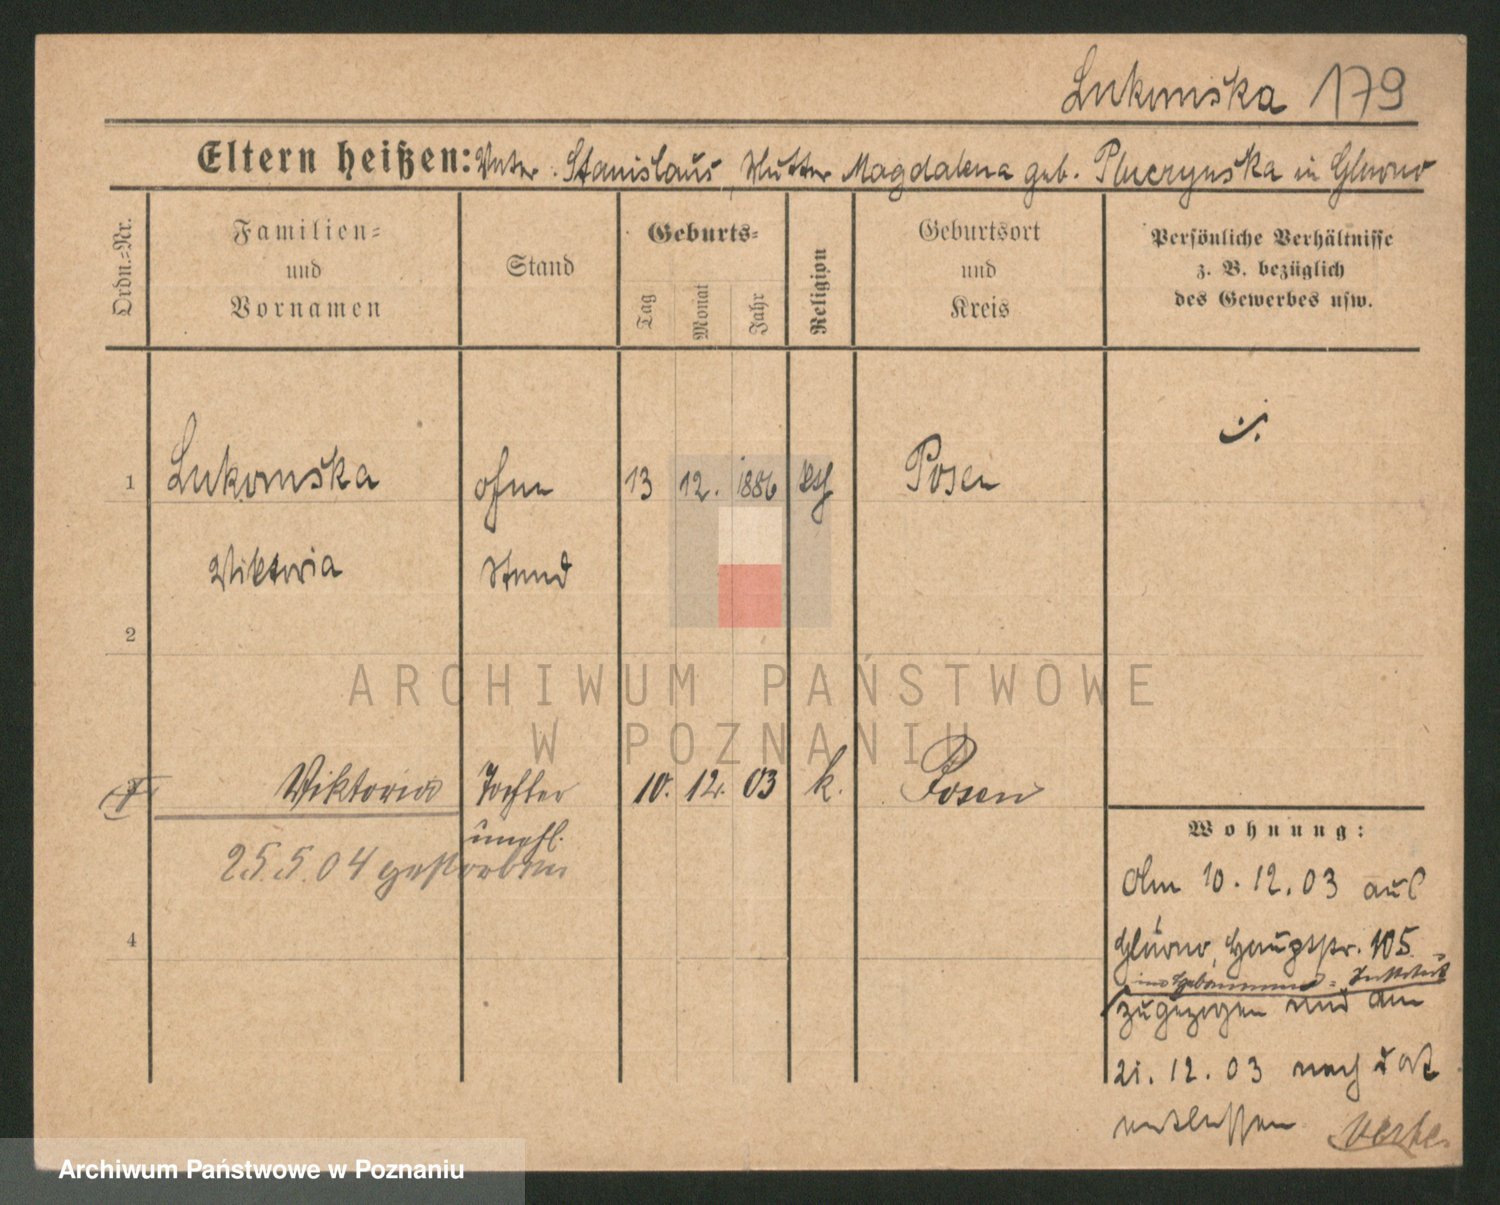 Lukomska 179
Eltern heißen: Vater: Stanislaus, Mutter Magdalena geb. Pluczynska in Glowno
Ordn.-Nr.
Familien-
und
Vornamen
Stand
Geburts-
Tag
Monat
Jahr
Religion
Geburtsort
und
Kreis
Persönliche Verhältnisse
z. B. bezüglich
des Gewerbes usw.
1 Lukomska ohne 13 12. 1886 kth Posen
Viktoria Stand
2
ARCHIWUM PAŃSTWOWE
W POZNANIU
Viktoria Tochter 10. 12. 03 k. Posen
unehl.
25.5.04 gestorben
4
Wohnung:
Am 10.12.03 aus
Glowno, Hauptstr. 105
ins Hebammen-Institut
zugezogen und am
21.12.03 nach dort
entlassen
Archiwum Państwowe w Poznaniu